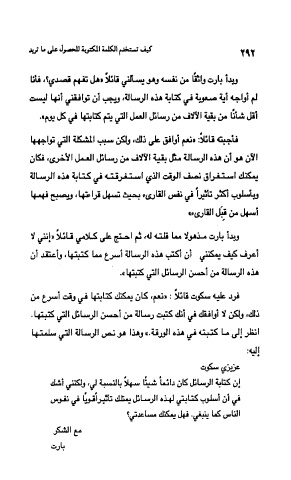 كيف تستخدم الكلمة المكتوبة للحصول على ما تريد
٢٩٢
وبدأ بارت واثقًا من نفسه وهو يسألني قائلاً «هل تفهم قصدي؟، فأنا
لم أواجه أية صعوبة في كتابة هذه الرسالة، ويجب أن توافقني أنها ليست
أقل شأنًا من بقية الآلاف من رسائل العمل التي يتم كتابتها في كل يوم».
فأجبته قائلاً: «نعم أوافق على ذلك، ولكن سبب المشكلة التي تواجهها
الآن هو أن هذه الرسالة مثل بقية الآلاف من رسائل العمل الأخرى، فكان
يمكنك استغراق نصف الوقت الذي استغرقته في كتابة هذه الرسالة
وبأسلوب أكثر تأثيراً في نفس القارىء، بحيث تسهل قراءتها، ويصبح فهمها
أسهل من قبل القارىء»
وبدأ بارت مذهولا مما قلته له، ثم احتج على كلامي قائلاً «إنني لا
أعرف كيف يمكنني أن أكتب هذه الرسالة أسرع مما كتبتها، وأعتقد أن
هذه الرسالة من أحسن الرسائل التي كتبتها».
فرد عليه سكوت قائلاً : «نعم، كان يمكنك كتابتها في وقت أسرع من
ذلك، ولكن لا أوافقك في أنك كتبت رسالة من أحسن الرسائل التي كتبتها.
انظر إلى ما كتبته في هذه الورقة.» وهذا هو نص الرسالة التي سلمتها
إليه:
عزيزي سكوت
إن كتابة الرسائل كان دائماً شيئًا سهلاً بالنسبة لي، ولكنني أشك
في أن أسلوب كتابتي لهذه الرسائل يمتلك تأثيراً قويًا في نفوس
الناس كما ينبغي. فهل يمكنك مساعدتي؟
مع الشكر
بارت